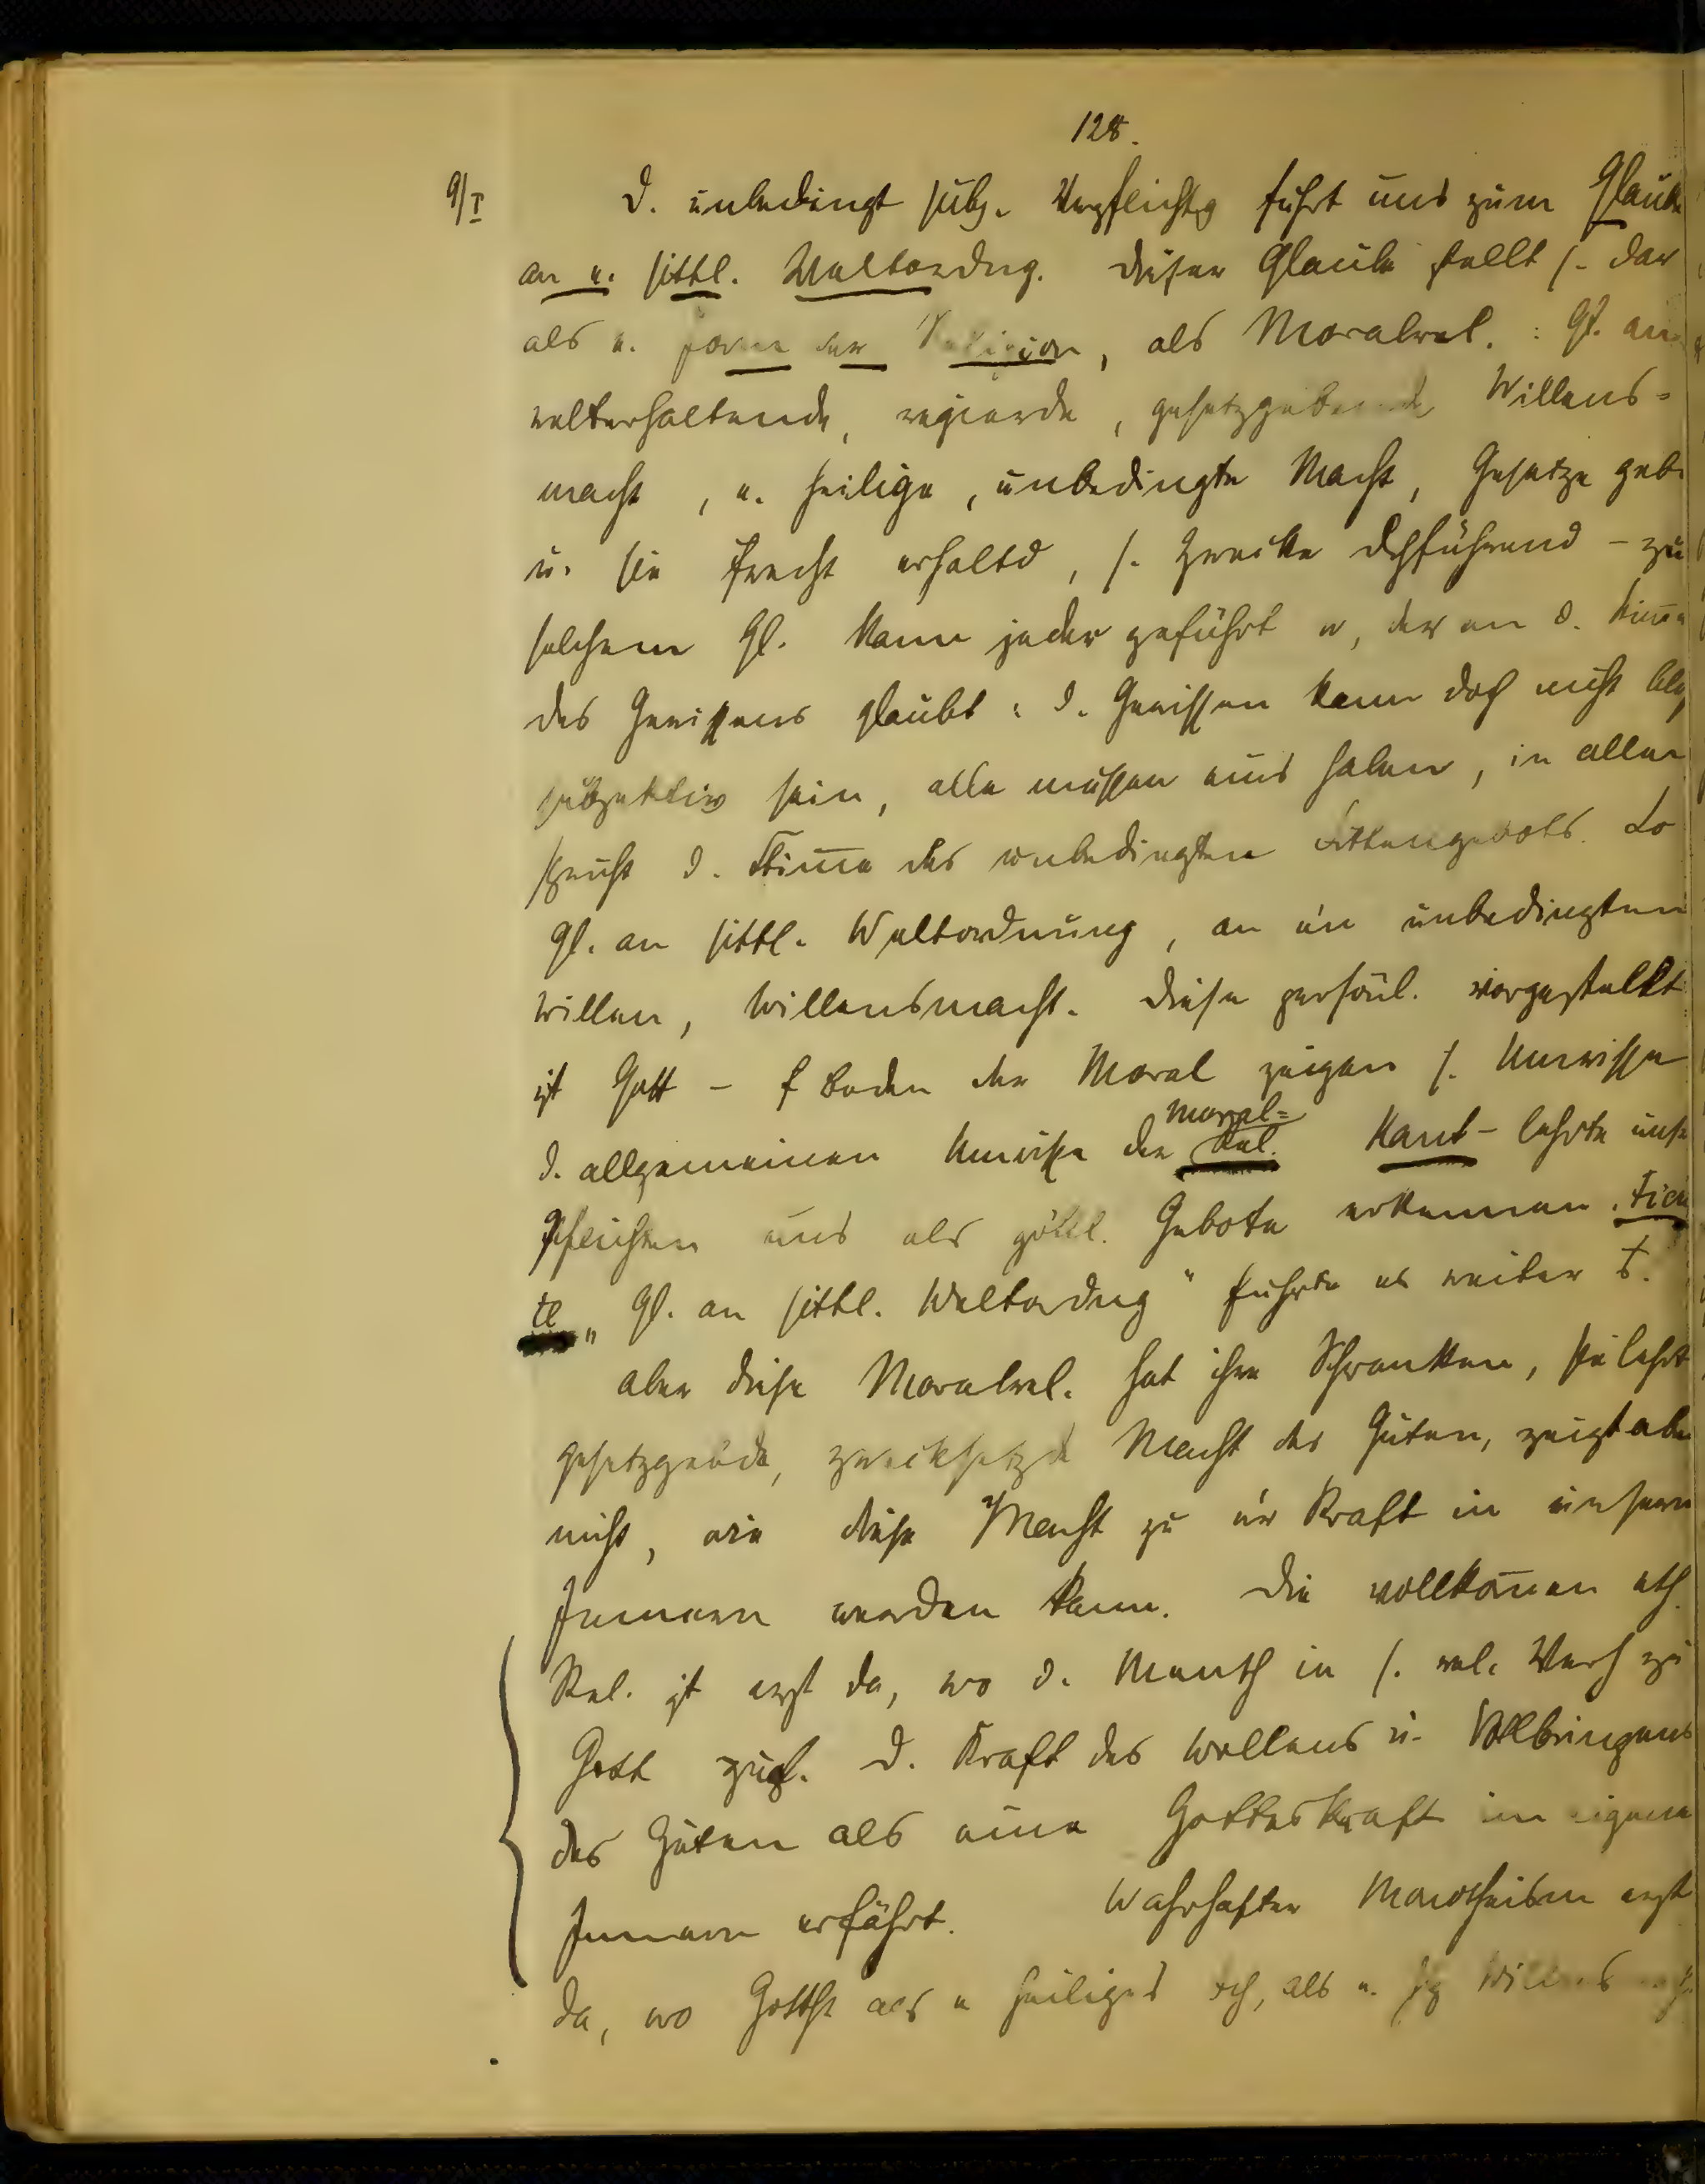 128.
9/I D. unbedingt subj. Verpflichtg führt uns zum Glaube
an e. sittl. Weltordng. Dieser Glaube stellt s. dar
als e. Form der Religion, als Moralrel. : Gl. an
welterhaltende, regierde, gesetzgebende Willens-
macht, e. heilige, unbedingte Macht, Gesetze geb.
u. sie frecht erhaltd, s. Zwecke dchführend - zu
solchem Gl. kann jeder geführt w, der an d. Stimme
des Gewissens glaubt: d. Gewissen kann doch nicht blos
subjektiv sein, alle müssen eins haben, in allen
spricht d. Stimme des unbedingten Sittengebots. So
Gl. an sittl. Weltordnung, an ein unbedingten
Willen, Willensmacht. Diese persönl. vorgestellt
ist Gott - f Boden der Moral zeigen s. Umrisse
d. allgemeinen Umrisse der Moral-
Rel. Kant - lehrte uns
Pflichten uns als göttl. Gebote erkennen. Fich
te „Gl. an sittl. Weltordng" führte es weiter
aber diese Moralrel. hat ihre Schranken, sie lehrt
gesetzgebde, zwecksetzde Macht des Guten, zeigt aber
nicht, wie diese Macht zu er Kraft in unserm
Inneren werden kann. Die vollkommen eth.
Rel. ist erst da, wo d. Mensch in s. rel. Verh zu
Gott zugl. d. Kraft des Wollens u. Vollbringens
des Guten als eine Gotteskraft im eigenen
Innern erfährt. Wahrhafter Monotheism erst
da, wo Gotth als e heiliges Ich, als e. hg Willens